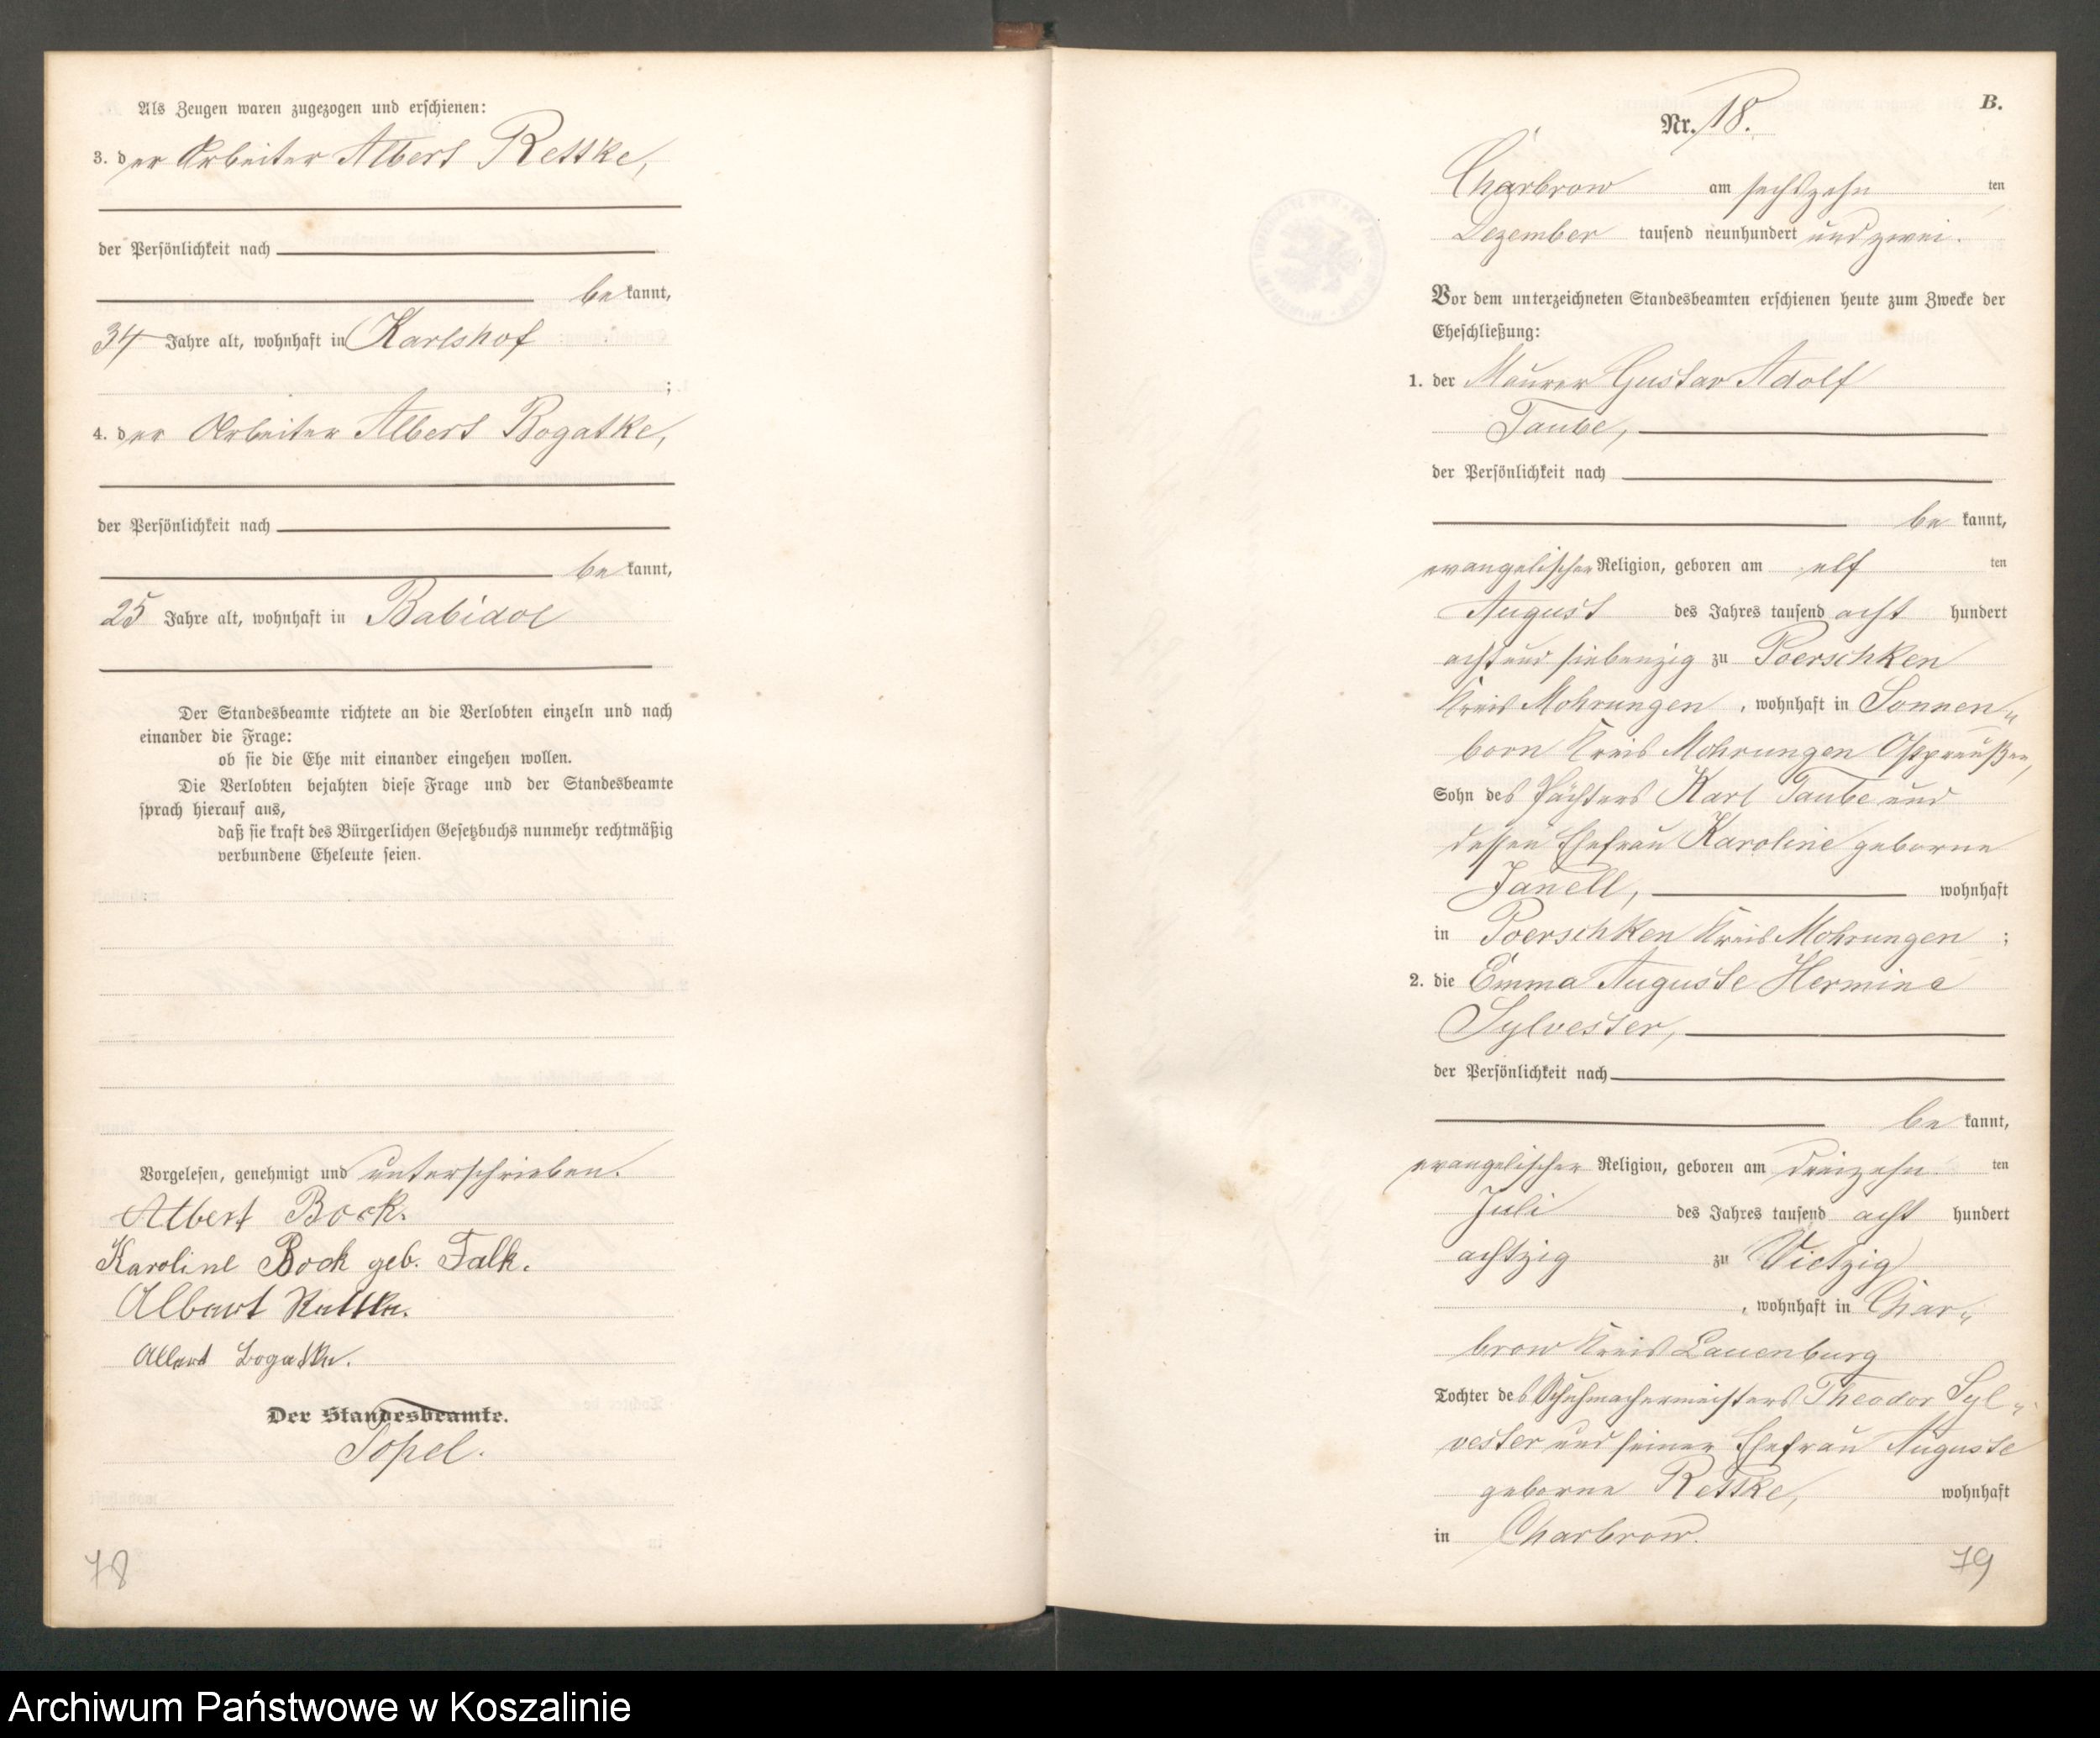 Als Zeugen waren zugezogen und erschienen:
3. der Arbeiter Albert Rettke,
der Persönlichkeit nach
be kannt,
34 Jahre alt, wohnhaft in Karlshof
;
4. der Arbeiter Albert Bogatke,
der Persönlichkeit nach
be kannt,
25 Jahre alt, wohnhaft in Babidol
Der Standesbeamte richtete an die Verlobten einzeln und nach
einander die Frage:
ob sie die Ehe mit einander eingehen wollen.
Die Verlobten bejahten diese Frage und der Standesbeamte
sprach hierauf aus,
daß sie kraft des Bürgerlichen Gesetzbuchs nunmehr rechtmäßig
verbundene Eheleute seien.
Vorgelesen, genehmigt und unterschrieben.
Albert Bock.
Karoline Bock geb. Falk.
Albert Rettke.
Albert Bogatke.
Der Standesbeamte.
Topel.
78
B.
Nr. 18.
Charbrow am sechszehn ten
Dezember tausend neunhundert und zwei.
Vor dem unterzeichneten Standesbeamten erschienen heute zum Zwecke der
Eheschließung:
1. der Maurer Gustav Adolf
Taube,
der Persönlichkeit nach
be kannt,
evangelischer Religion, geboren am elf ten
August des Jahres tausend acht hundert
acht und siebenzig zu Poerschken
Kreis Mohrungen, wohnhaft in Sonnen„
born Kreis Mohrungen Ostpreußen,
Sohn des Pächters Karl Taube und
dessen Ehefrau Karoline geborne
Janell, wohnhaft
in Poerschken Kreis Mohrungen ;
2. die Emma Auguste Hermine
Sylvester,
der Persönlichkeit nach
be kannt,
evangelischer Religion, geboren am dreizehn ten
Juli des Jahres tausend acht hundert
achtzig zu Vietzig
, wohnhaft in Char„
brow Kreis Lauenburg
Tochter des Schuhmachermeisters Theodor Syl„
vester und seiner Ehefrau Auguste
geborne Rettke, wohnhaft
in Charbrow.
79
Archiwum Państwowe w Koszalinie